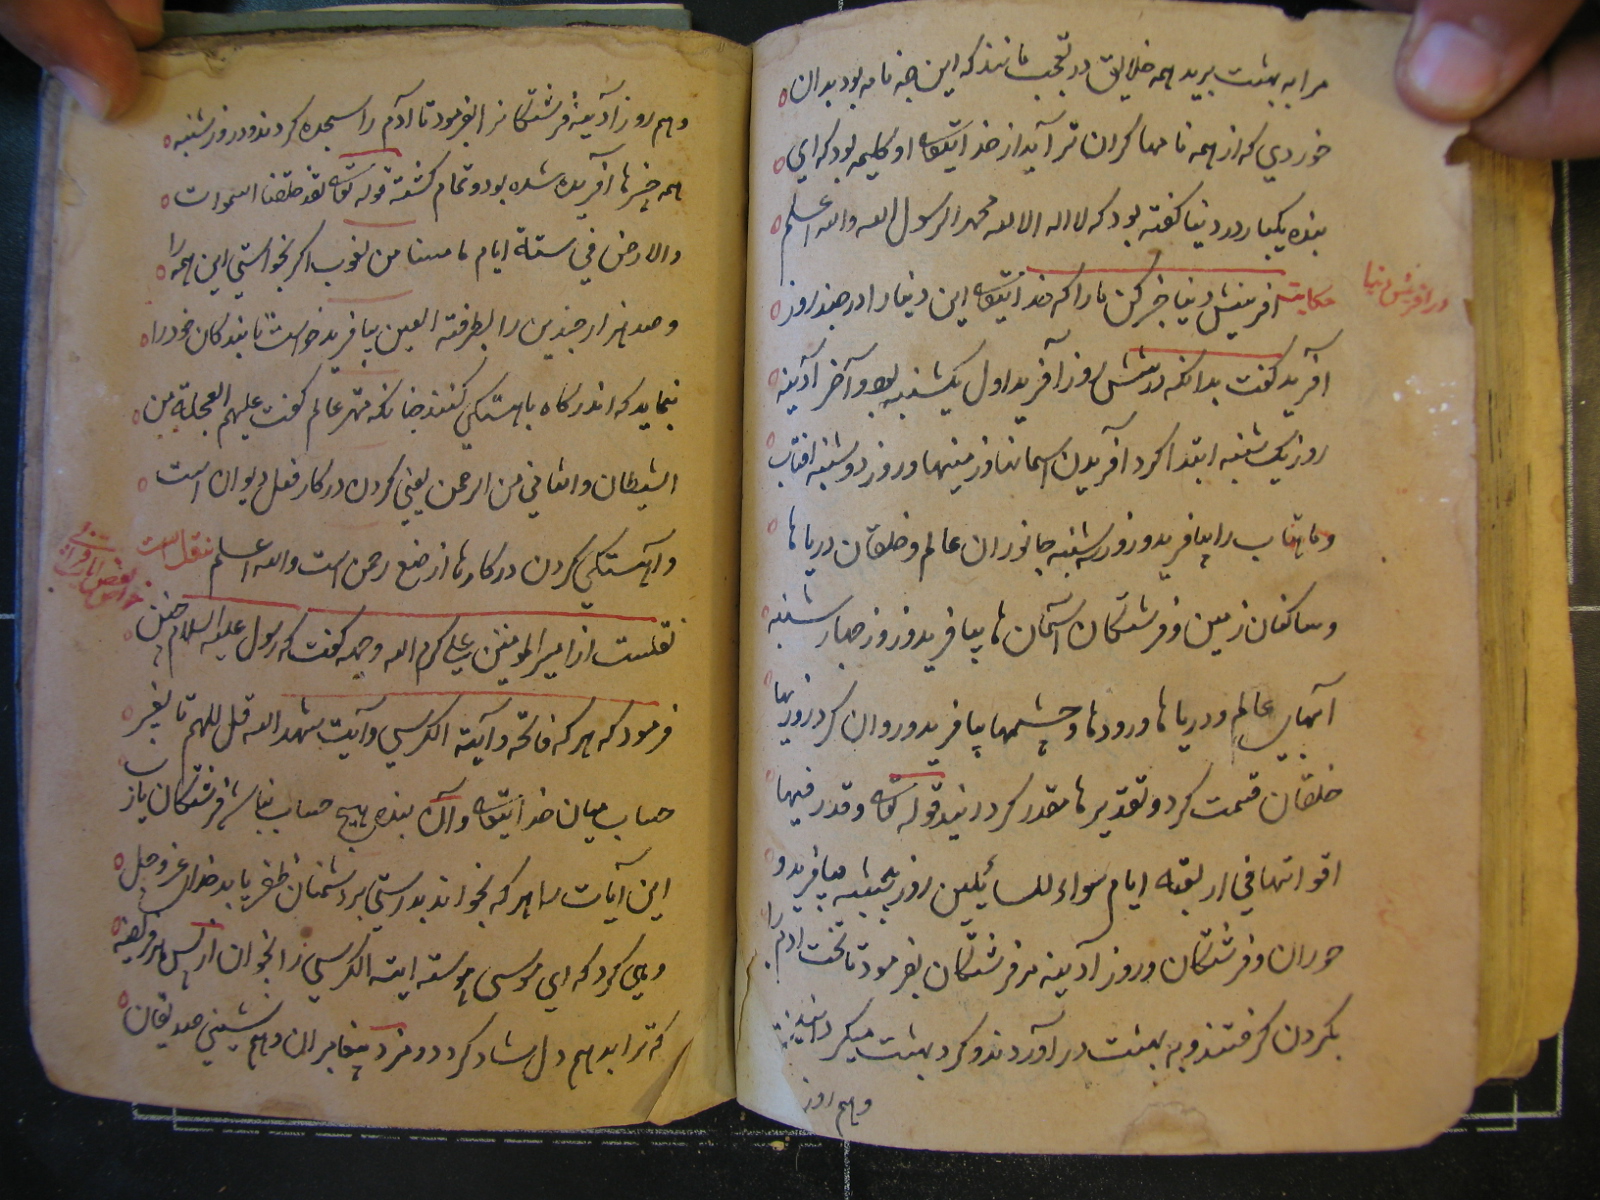 مرا به بهشت برید همه خلایق در تعجب مانند که این چه نامه بود بدان
خوردی که از همه نامها کران تر آید از خدایتعالی او کلیمه بود که ای
بنده یکبار در دنیا کفته بود که لا اله الا الله محمد الرسول الله والله اعلم
در افرینش دنیا
حکایت افرینش دنیا خبر کن مارا که خدایتعالی این دنیا را در چند روز
آفرید کفت بدانکه در شش روز آفرید اول یکشنبه بود و آخر آدینه
روز یک شنبه ابتدا کرد آفریدن اسمانها و زمینها و روز دوشنبه افتاب
و ماهتاب را بیافرید و روز سه شنبه جانوران عالم و خلقان دریاها
و ساکنان زمین و فرشتکان آسمان ها بیافرید و روز چهار شنبه
آبهای عالم و دریاها و رودها و چشمها بیافرید و روان کرد روزیها
خلقان قسمت کرد و تقدیرها مقدر کردانید قوله تعالی و قدر فیها
اقواتها فی اربعة ایام سواء للسائلین روز پنجشنبه بیافرید و
حوران و فرشتکان و روز آدینه مر فرشتکان بفرمود تا تخت ادم را
بکردن کرفتند و به بهشت در آوردند و کرد بهشت میکردانیدند
و هم روز
و هم روز آدینه فرشتکانرا بفرمود تا آدم را سجده کردند و در روز شنبه
همه چیزها آفریده شده بود و تمام کشته قوله تعالی لقد خلقنا السموات
والارض فی ستة ایام ما مسنا من لغوب اکر بخواستی این همه را
و صد هزار چندین را بطرفة العین بیافرید خواست تا بندکان خود را
بنماید که اندر کاه باهستکی کنند چنانکه مهتر عالم کفت علیهم العجلة من
الشیطان والتانی من الرحمن یعنی کردن در کار فعل دیوان است
و آهستکی کردن در کارها از صنع رحمن است والله اعلم نقل است
نقلست از امیر المومنین علی کرم الله وجهه کفت که رسول علیه السلام چنین
فرمود که هر که فاتحه و آیة الکرسی و آیت شهد الله قل اللهم تا بغیر
حساب میان خدایتعالی و آن بنده هیچ حساب نباشد فرشتکان باز
این آیات را هر که بخواند بدرستی بر دشمنان ظفر یابد خدای عز و جل
وحی کرد که ای موسی پیوسته ایة الکرسی را بخوان از پس هر فریضه
که ترا بدهم دل شاد کردد و مزد پیغامبران و هم نشینی صدیقان